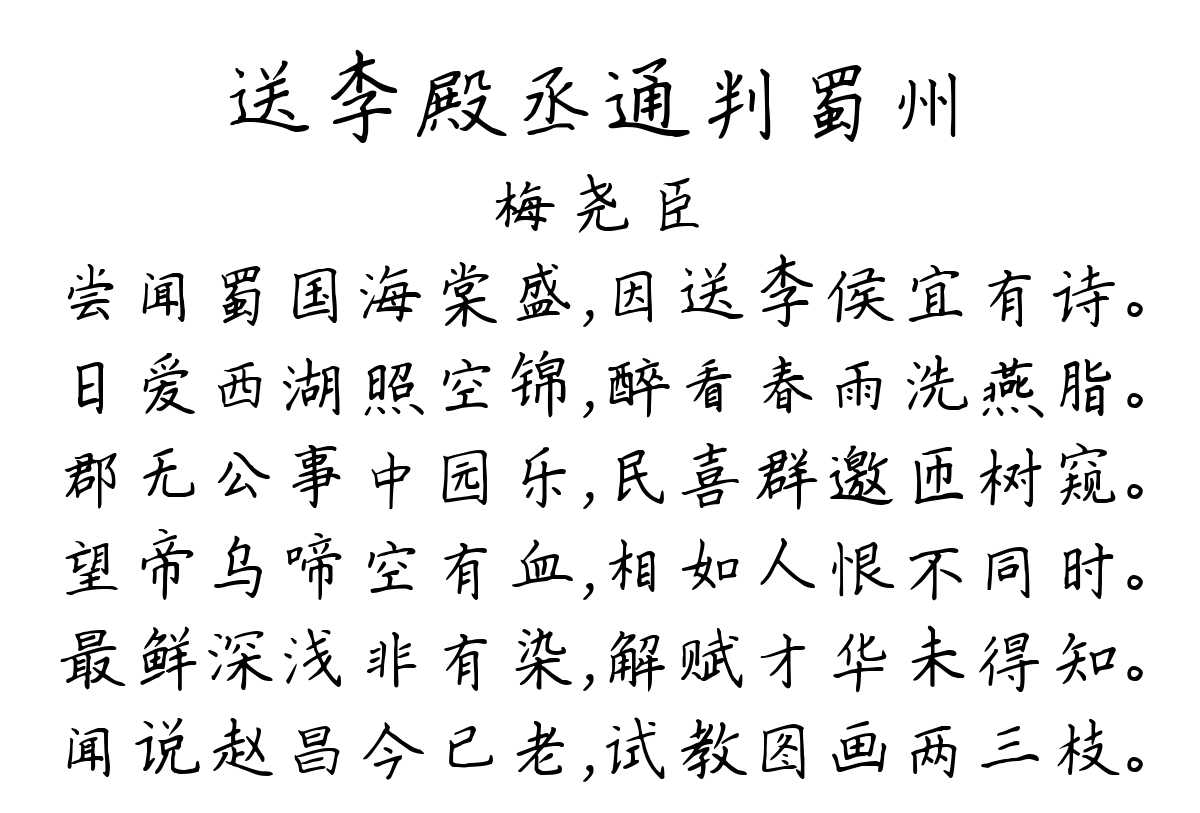 送李殿丞通判蜀州
梅尧臣
尝闻蜀国海棠盛,因送李侯宜有诗。
日爱西湖照空锦,醉看春雨洗燕脂。
郡无公事中园乐,民喜群邀匝树窥。
望帝乌啼空有血,相如人恨不同时。
最鲜深浅非有染,解赋才华未得知。
闻说赵昌今已老,试教图画两三枝。